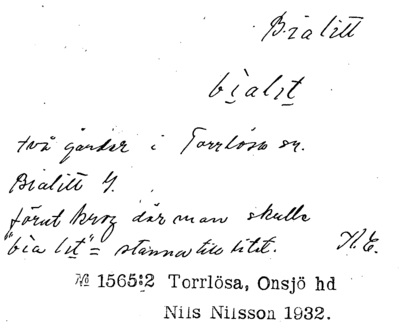 Bialitt
bialit
två gårdar i Torrlösa sn.
Bialitt G.
förut krog där man skulle
"bia lit" = stanna till litet. N.E.
№ 1565:2 Torrlösa, Onsjö hd
Nils Nilsson 1932.